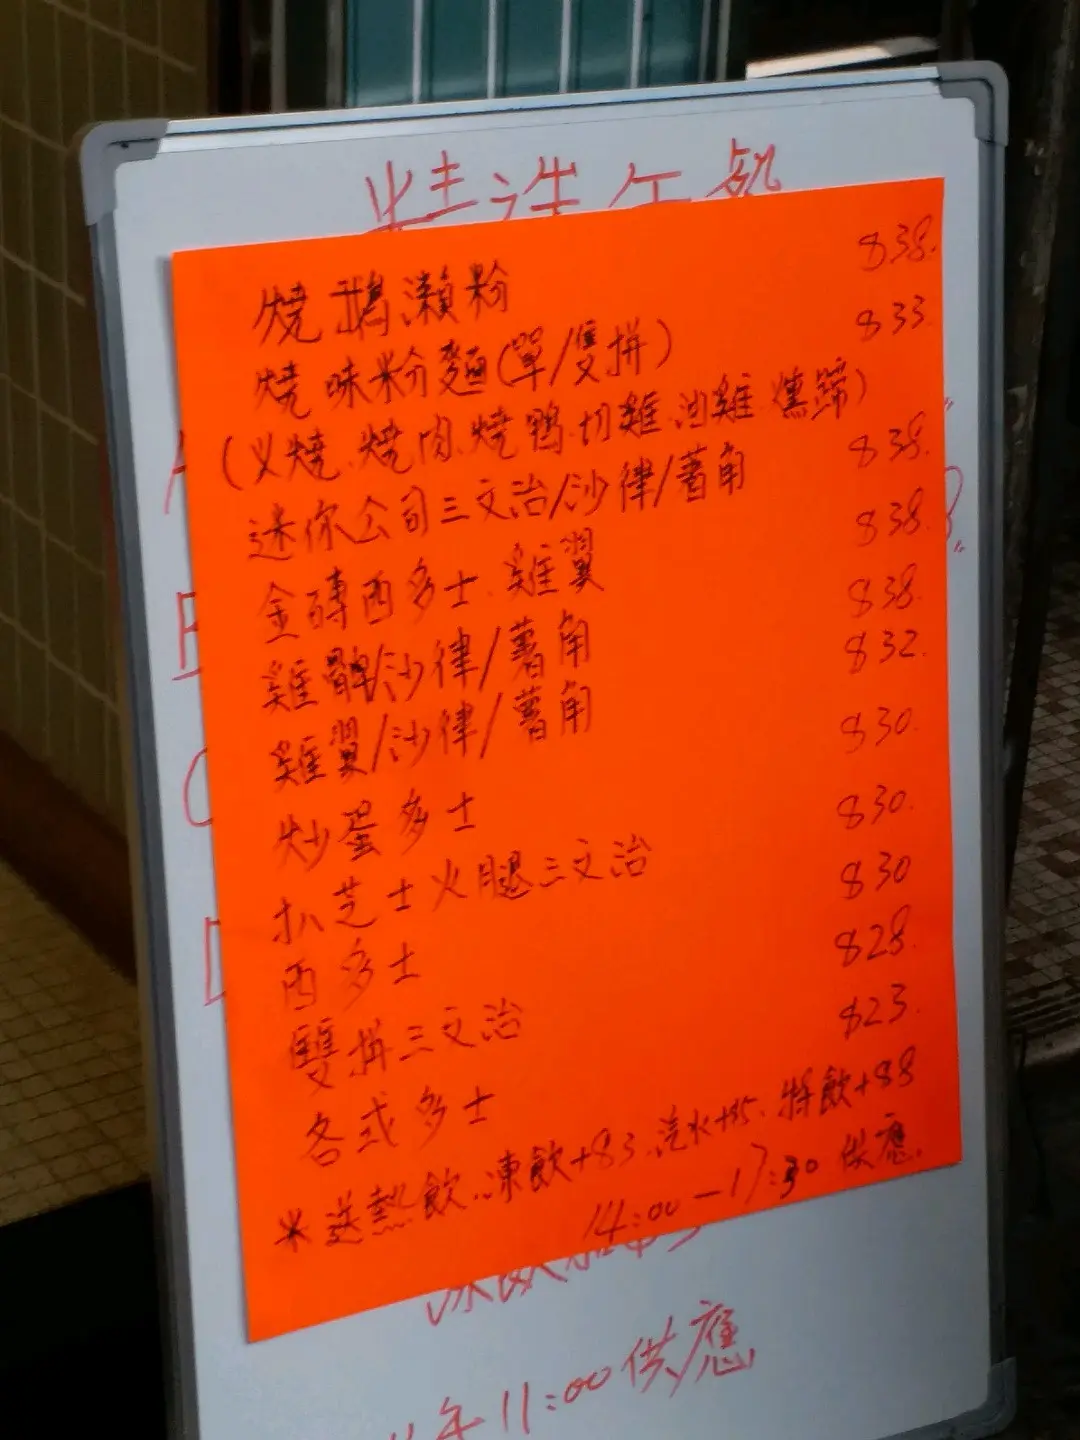 精選午餐
燒鵝瀨粉 $38.
燒味粉麵(單/雙拼) $33.
(叉燒.燒肉.燒鴨.切雞.油雞.燻蹄)
迷你公司三文治/沙律/薯角 $38.
金磚西多士.雞翼 $38.
雞髀/沙律/薯角 $38.
雞翼/沙律/薯角 $32.
炒蛋多士 $30.
扒芝士火腿三文治 $30.
西多士 $30
雙拼三文治 $28.
各式多士 $23.
*送熱飲.凍飲+$3.汽水+$5.特飲+$8
14:00—17:30供應.
凍飲加
11:00供應